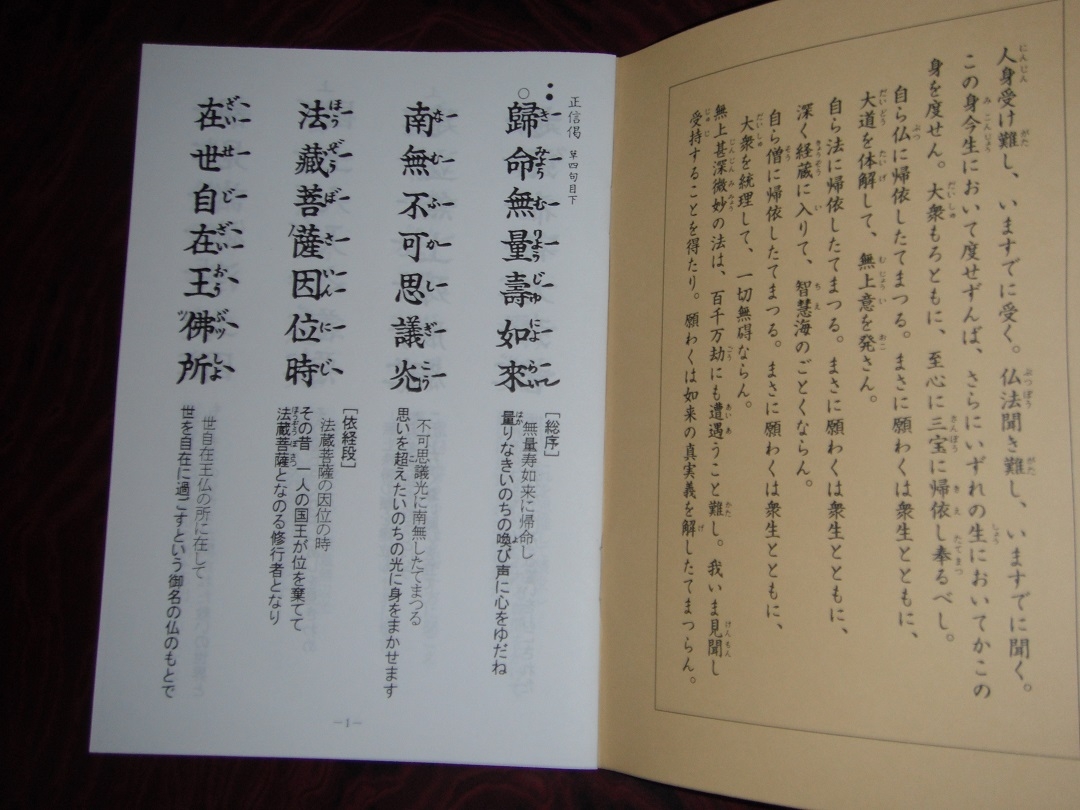 人身受け難し、いますでに受く。仏法聞き難し、いますでに聞く。
この身今生において度せずんば、さらにいずれの生においてかこの
身を度せん。大衆もろともに、至心に三宝に帰依し奉るべし。
自ら仏に帰依したてまつる。まさに願わくは衆生とともに、
大道を体解して、無上意を発さん。
自ら法に帰依したてまつる。まさに願わくは衆生とともに、
深く経蔵に入りて、智慧海のごとくならん。
自ら僧に帰依したてまつる。まさに願わくは衆生とともに、
大衆を統理して、一切無碍ならん。
無上甚深微妙の法は、百千万劫にも遭遇うこと難し。我いま見聞し
受持することを得たり。願わくは如来の真実義を解したてまつらん。
正信偈 草四句目下
歸命無量壽如來
[総序]
無量寿如来に帰命し
量りなきいのちの喚び声に心をゆだね
南無不可思議光
不可思議光に南無したてまつる
思いを超えたいのちの光に身をまかせます
法藏菩薩因位時
[依経段]
法蔵菩薩の因位の時
その昔 一人の国王が位を棄てて
法蔵菩薩となのる修行者となり
在世自在王佛所
世自在王仏の所に在して
世を自在に過ごすという御名の仏のもとで
~1~